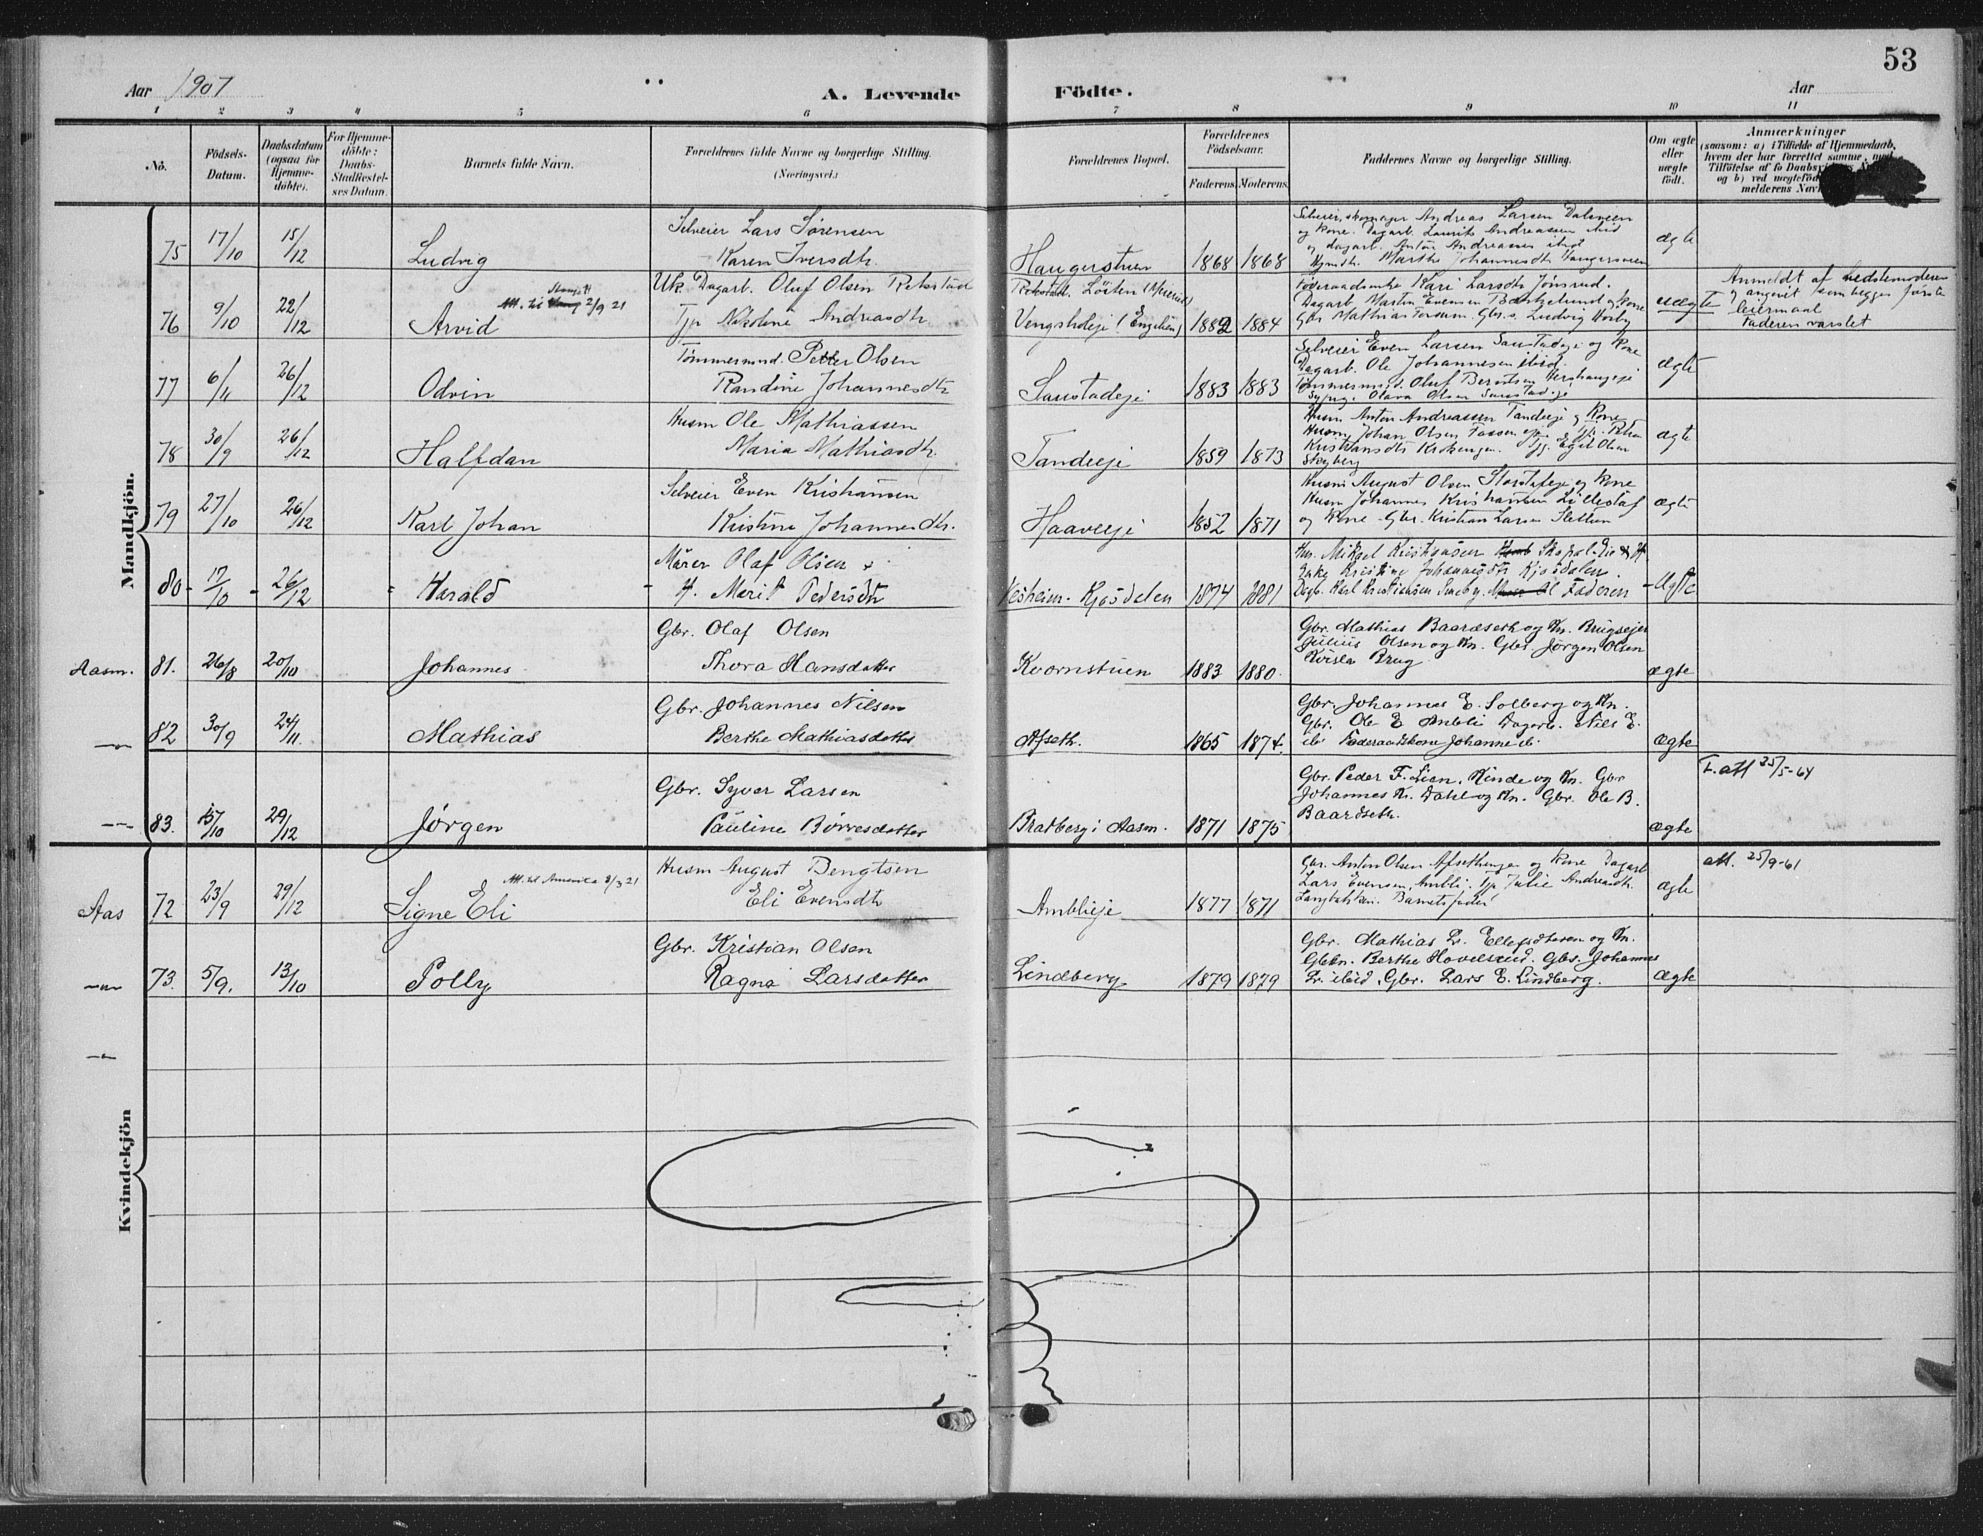 53
Aar 1907 A. Levende Födte. Aar
1 2 3 4 5 6 7 8 9 10 11
No. Födsels-Datum. Daabsdatum (ogsaa for Hjemme-döbte). For Hjemme-döbte: Daabs-Stadfæstel-ses Datum. Barnets fulde Navn. Forældrenes fulde Navne og borgerlige Stilling. (Næringsvei.) Forældrenes Bopæl. Forældrenes Födselsaar. Faderens. Moderens. Faddernes Navne og borgerlige Stilling. Om ægte eller uægte födt. Anmærkninger
(saasom: a) i Tilfælde af Hjemmedaab,
hvem der har forrettet samme, med
Tilföielse af
og b) ved uægteföd
melderens Nav
Mandkjön.
75 17/10 15/12 Ludvig
Selveier Lars Sørensen
Karen Iversdtr.
Haugerstuen 1868 1868
Selveier, skomager Andreas Larsen Dalsveen
og Kone. Dagarb. Laurits Andreassen ibid
og dagarb. Anton Andreassen ibid
Marthe Johannesdtr Haugerstuen
ægte
76 9/10 22/12 Arvid
Att. til 2/9 21
Uk. Dagarb. Oluf Olsen Rekstad
Tjp Nikoline Andreasdtr
Løiten
Vengsholeje (Engelien) 1882 1884
Føderaadsenke Kari Larsdtr Jønsrud.
Dagarb. Martin Evensen og Kone
Gbr Mathias Gbr.s. Ludvig
uægte
Anmeldt af Jordemoderen
og angivet som begges første
leiermaal
Faderen varslet
77 6/11 26/12 Odvin
Tømmermand. Petter Olsen
Randine Johannesdtr
Saustadeje 1883 1883
Selveier Even Larsen Saustadeje og Kone
Dagarb. Ole Johannesen ibid.
Tømmermand. Oluf Berntsen
Sypige Olava Olsen Saustadeje
ægte
78 30/9 26/12 Halfdan
Husm Ole Mathiassen
Maria Mathiasdtr.
Tandeeje 1859 1873
Husm Anton Andreassen Tandeeje og Kone
Husm Johan Olsen
Kristiansdtr Egil Olsen
Skogberg
ægte
79 27/10 26/12 Karl Johan
Selveier Even Kristiansen
Kristine Johannesdtr.
Haaveeje 1852 1871
Husm August Olsen og Kone
Husm Johannes Kristiansen Lillestøf
og Kone. Gbr. Kristian Larsen Sletten
ægte
80 17/10 26/12 Harald
Mürer Olaf Olsen
H. Marit Pedersdtr
Vesheim. Kjosdalen 1874 1881
Hr. Mikael Kristiansen
Enke Kristine Johannesdtr Kjosdalen.
Dagb. Karl Kristiansen Smeby. Faderen
Ægte
Aasm. 81. 26/8 20/10 Johannes
Gbr. Olaf Olsen
Thora Hansdatter
Kvernstuen 1883 1880.
Gbr. Mathias Baardseth og Kn. Brugseier
Julius Olsen og Kn. Gbr Jørgen Olsen
Kvisla Brug
ægte
82 30/9 24/11. Mathias
Gbr. Johannes Nilsen
Berthe Mathiasdatter
Afseth. 1865 1874.
Gbr. Johannes E. Solberg og Kn.
Gbr. Ole E Ambli Dagarb. Nils E.
ib. Føderaadskone Johanne ib.
ægte
83. 15/10 29/12 Jørgen
Gbr. Syver Larsen
Pauline Børresdatter
Bratberg i Aasm. 1871 1875
Gbr. Peder F. Lien, Kinde og Kn. Gbr
Johannes Kr. Dahl og Kn. Gbr. Ole B.
Baardseth.
ægte
T. att 25/5-64
Kvindekjön
Aas 72 23/9 29/12 Signe Eli
Att. til Amerika 8/3 21
Husm August Bengtsen
Eli Evensdtr
Amblieje 1877 1871
Gbr. Anton Olsen Afsethengen og Kone Dagarb
Lars Evensen, Ambli. tjp Julie Andreasdtr.
Barnets fader
ægte
att. 25/9-61
73. 5/9. 13/10 Polly
Gbr. Kristian Olsen
Ragna Larsdatter
Lindberg 1879 1879
Gbr. Mathias Pr. Ellefsæteren og Kn.
Gbkn. Berthe Hovelsrud. Gbs. Johannes
Pr. ibid. Gbr. Lars E. Lindberg.
ægte